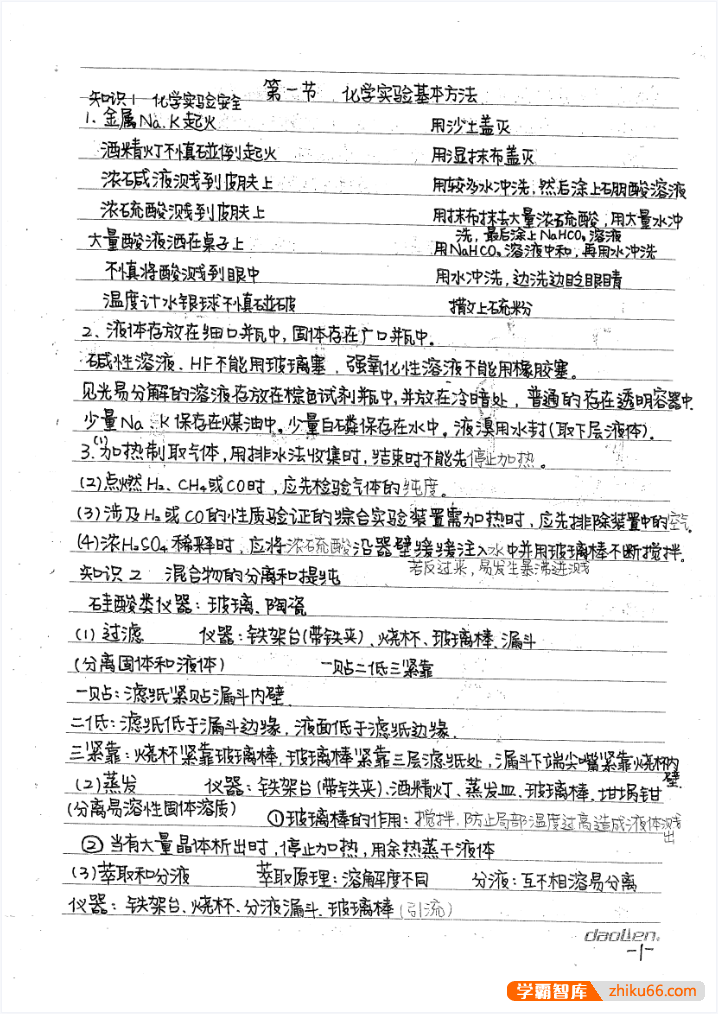 第一节 化学实验基本方法
知识1 化学实验安全
1. 金属Na、K起火 用沙土盖灭
酒精灯不慎碰倒起火 用湿抹布盖灭
浓碱液溅到皮肤上 用较多水冲洗,然后涂上硼酸溶液
浓硫酸溅到皮肤上 用抹布抹去大量浓硫酸,用大量水冲
洗,最后涂上NaHCO₃溶液
大量酸液洒在桌子上 用NaHCO₃溶液中和,再用水冲洗
不慎将酸溅到眼中 用水冲洗,边洗边眨眼睛
温度计水银球不慎碰破 撒上硫粉
2、液体存放在细口瓶中,固体存在广口瓶中。
碱性溶液、HF不能用玻璃塞,强氧化性溶液不能用橡胶塞。
见光易分解的溶液存放在棕色试剂瓶中,并放在冷暗处,普通的存在透明容器中.
少量Na、K保存在煤油中。少量白磷保存在水中。液溴用水封(取下层液体).
3.(1)加热制取气体,用排水法收集时,结束时不能先停止加热。
(2)点燃H₂、CH₄或CO时,应先检验气体的纯度。
(3)涉及H₂或CO的性质验证的综合实验装置需加热时,应先排除装置中的空气。
(4)浓H₂SO₄稀释时,应将浓硫酸沿器壁缓缓注入水中并用玻璃棒不断搅拌。
若反过来,易发生暴沸迸溅
知识2 混合物的分离和提纯
硅酸类仪器:玻璃、陶瓷
(1)过滤 仪器:铁架台(带铁夹)、烧杯、玻璃棒、漏斗
(分离固体和液体) 一贴二低三紧靠
一贴:滤纸紧贴漏斗内壁.
二低:滤纸低于漏斗边缘,液面低于滤纸边缘.
三紧靠:烧杯紧靠玻璃棒,玻璃棒紧靠三层滤纸处,漏斗下端尖嘴紧靠烧杯内
壁.
(2)蒸发 仪器:铁架台(带铁夹)、酒精灯、蒸发皿、玻璃棒、坩埚钳
(分离易溶性固体溶质) ①玻璃棒的作用:搅拌,防止局部温度过高造成液体溅
出
②当有大量晶体析出时,停止加热,用余热蒸干液体
(3)萃取和分液 萃取原理:溶解度不同 分液:互不相溶易分离
仪器:铁架台、烧杯、分液漏斗、玻璃棒(引流)
daolien.
-1-
学霸智库 zhiku66.com